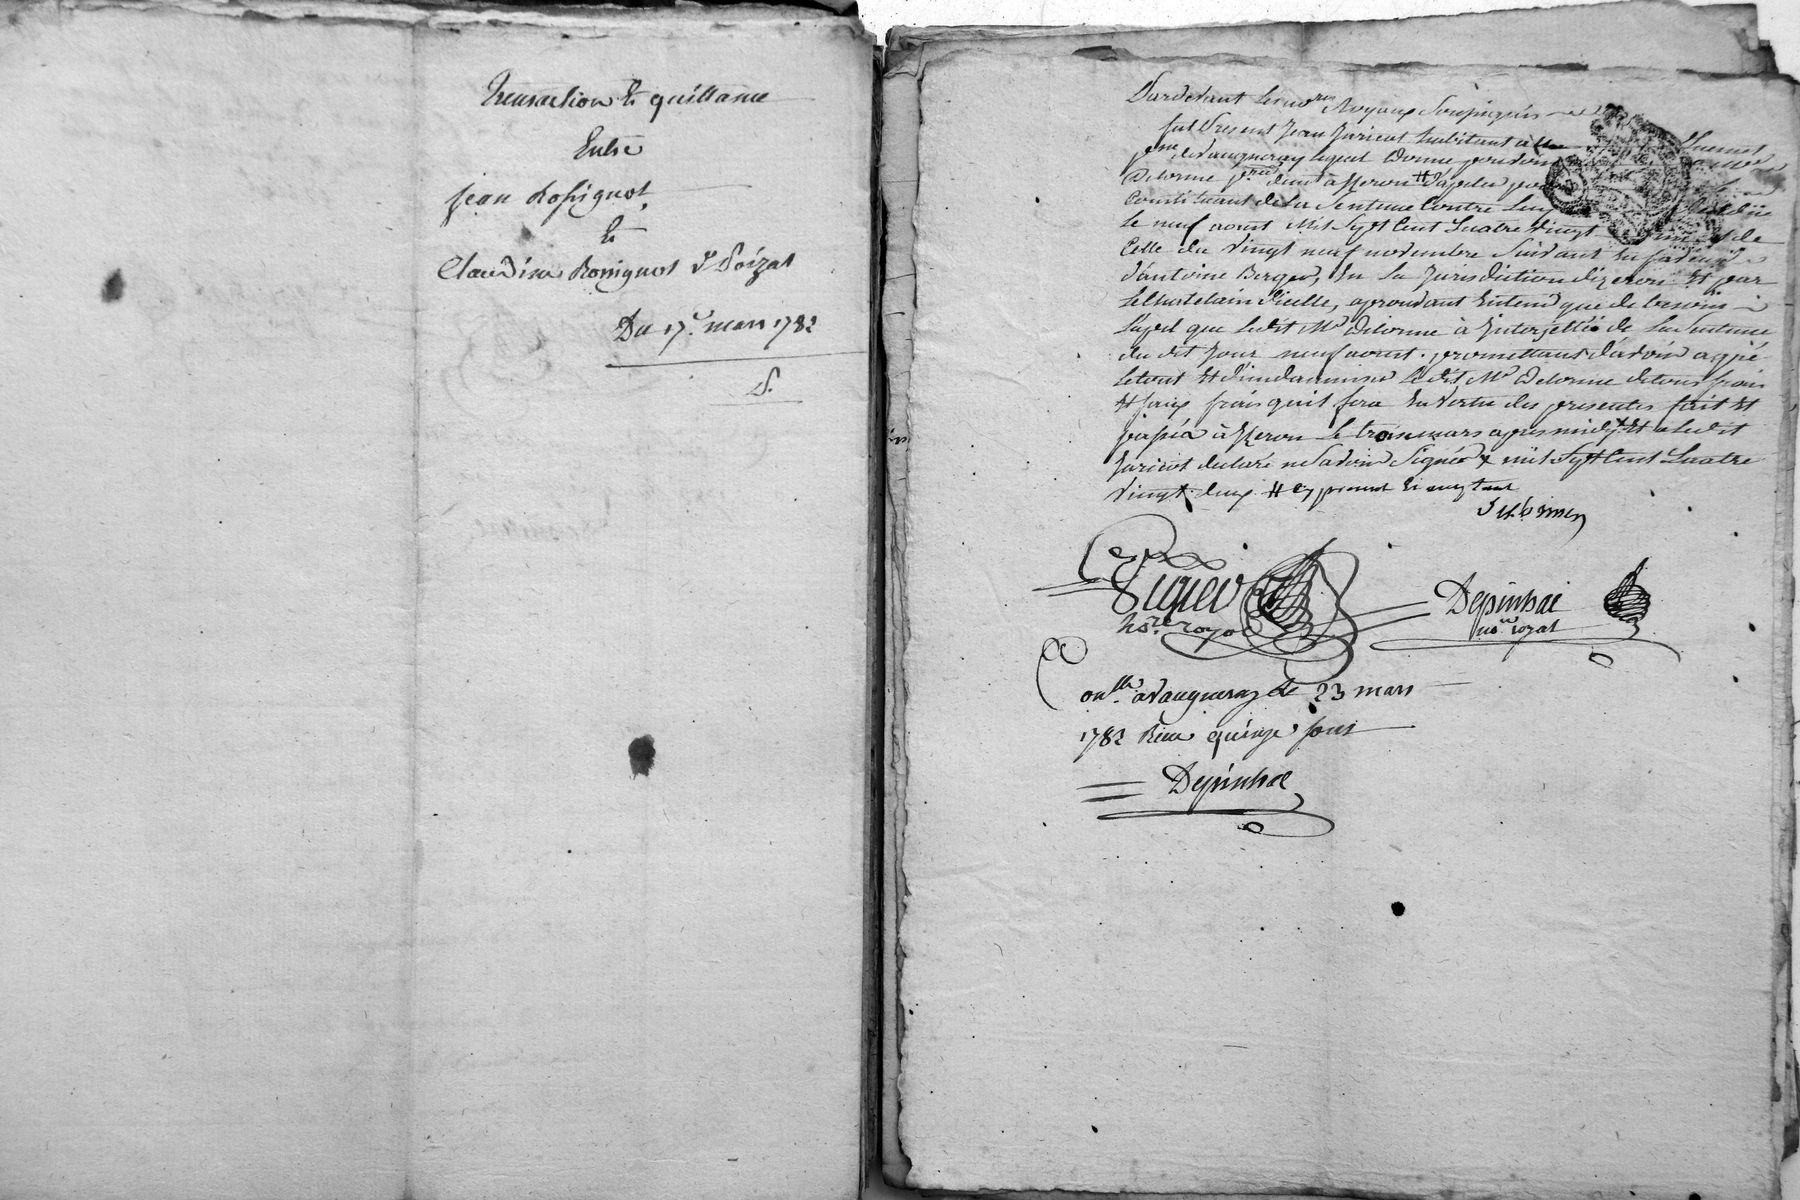 Transaction Et quittance
Entre
Jean Rossignol,
Et
Claudine Rossignol Ve Poizat
Du 17e. mars 1782
D.
Pardevant les nores Royaux Soussignés
fut Present Jean Juricot habitant à
pse de vaugneray lequel donne pouvoir
Delorme preur d'appeler pour
Constituant de la Sentence Contre luy
le neuf aoust Mil Sept Cent Quatre vingt de
Celle du vingt neuf novembre Suivant En faveur
d'antoine Berger, En la Jurisdiction d'izeron Et par
le Chastelain d'icelle, aprouvant Entend que de besoin
l'apel que ledit Me Delorme à Interjetté de la Sentence
du dit Jour neuf aoust. promettant d'avoir agréé
le tout Et d'indamniser le dit Me Delorme de tous frais
Et faux frais qu'il fera En vertu des presentes fait Et
passé à izeron le trois mars apres midy Et a ledit
Juricot declaré ne Savoir Signer mil Sept Cent Quatre
vingt deux
Depinhac
nore royal
nore royal
onlle à Vaugneray le 23 mars
1782 Reçu quinze sous
Depinhac